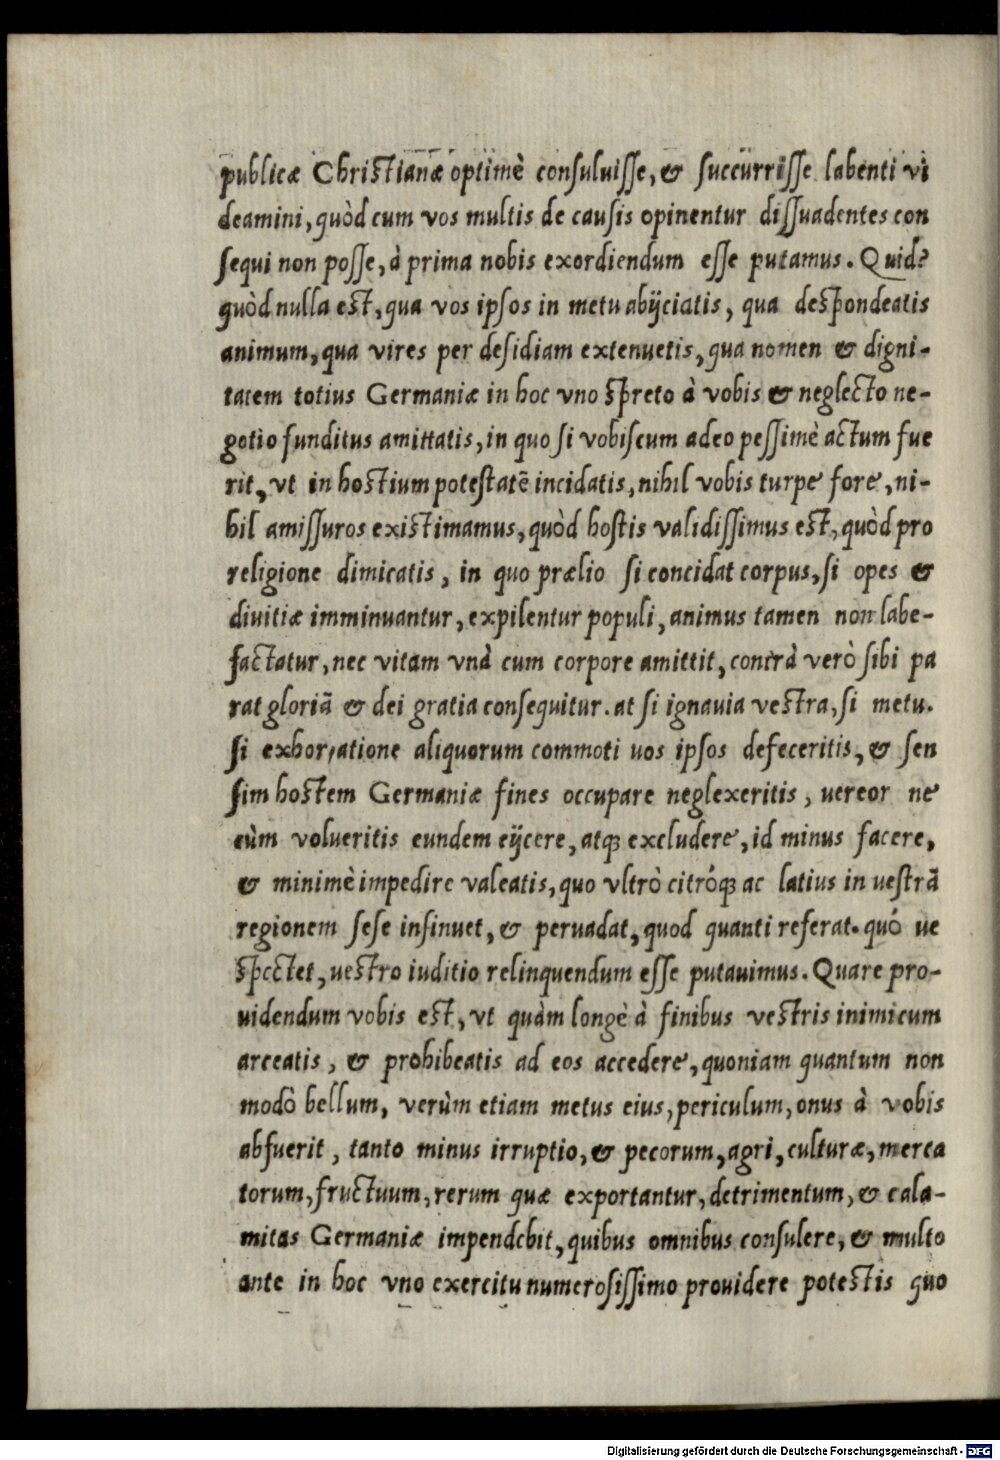 publicæ Christianæ optimè consuluisse, & succurrisse labenti vi
deamini, quòd cum vos multis de causis opinentur dissuadentes con
sequi non posse, à prima nobis exordiendum esse putamus. Quid?
quòd nulla est, qua vos ipsos in metu abijciatis, qua despondeatis
animum, qua vires per desidiam extenuetis, qua nomen & digni-
tatem totius Germaniæ in hoc vno spreto à vobis & neglecto ne-
gotio funditus amittatis, in quo si vobiscum adeo pessimè actum fue
rit, vt in hostium potestatē incidatis, nihil vobis turpe fore, ni-
hil amissuros existimamus, quòd hostis validissimus est, quòd pro
religione dimicatis, in quo prælio si concidat corpus, si opes &
diuitiæ imminuantur, expilentur populi, animus tamen non labe-
factatur, nec vitam vnà cum corpore amittit, contrà verò sibi pa
rat gloriā & dei gratia consequitur. at si ignauia vestra, si metu.
si exhortatione aliquorum commoti uos ipsos defeceritis, & sen
sim hostem Germaniæ fines occupare neglexeritis, uereor ne
cùm volueritis eundem eijcere, atq; excludere, id minus facere,
& minimè impedire valeatis, quo vltrò citróq; ac latius in uestrā
regionem sese insinuet, & peruadat, quod quanti referat. quó ue
spectet, uestro iuditio relinquendum esse putauimus. Quare pro-
uidendum vobis est, vt quàm longè à finibus vestris inimicum
arceatis, & prohibeatis ad eos accedere, quoniam quantum non
modò bellum, verùm etiam metus eius, periculum, onus à vobis
abfuerit, tanto minus irruptio, & pecorum, agri, culturæ, merca
torum, fructuum, rerum quæ exportantur, detrimentum, & cala-
mitas Germaniæ impendebit, quibus omnibus consulere, & multo
ante in hoc vno exercitu numerosissimo prouidere potestis quo
Digitalisierung gefördert durch die Deutsche Forschungsgemeinschaft - DFG